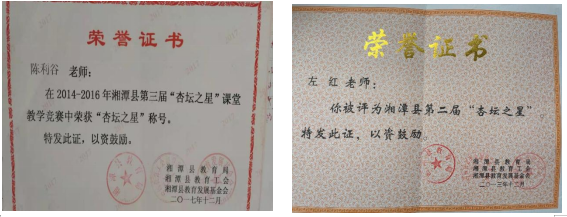 荣誉证书
陈利谷 老师：
在2014-2016年湘潭县第三届“杏坛之星”课堂
教学竞赛中荣获“杏坛之星”称号。
特发此证，以资鼓励。
湘潭县教育局
湘潭县教育工会
湘潭县教育发展基金会
二〇一七年十二月
荣誉证书
左 红 老师：
你被评为湘潭县第二届“杏坛之星”
特发此证、以资鼓励。
湘潭县教育局
湘潭县教育工会
湘潭县教育发展基金会
二〇一三年十二月